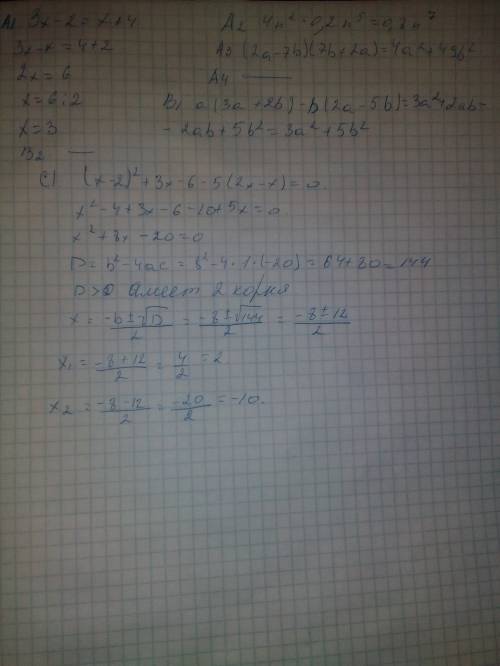 A1 3x-2=x+4
3x-x=4+2
2x=6
x=6:2
x=3
A2 4n² · 0,2n⁵ = 0,8n⁷
A3 (2a-7b)(7b+2a)=4a²+49b²
A4 —
B1 a(3a+2b)-b(2a-5b)=3a²+2ab-
-2ab+5b²=3a²+5b²
B2 —
C1 (x-2)²+3x-6-5(2x-x)=0
x²-4+3x-6-10+5x=0
x²+8x-20=0
D=b²-4ac=8²-4·1·(-20)=64+80=144
D>0 имеет 2 корня
x = (-b±√D)/2 = (-8±√144)/2 = (-8±12)/2
x₁ = (-8+12)/2 = 4/2 = 2
x₂ = (-8-12)/2 = -20/2 = -10.